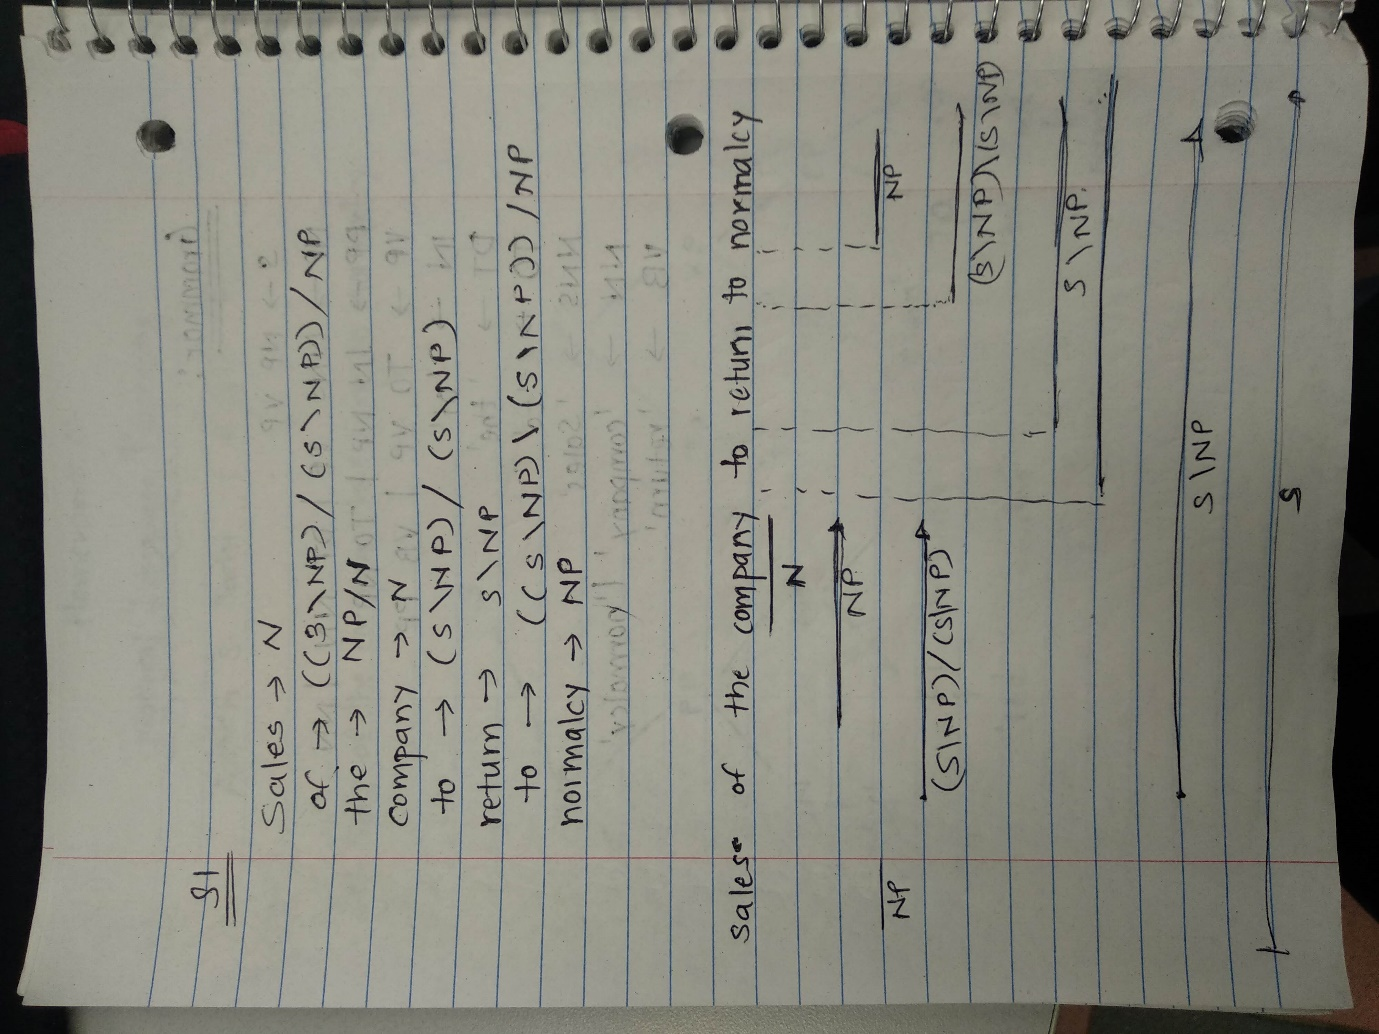 S1
Sales → N
of → ((S\NP)/(S\NP))/NP
the → NP/N
Company → N
to → (S\NP)/(S\NP)
return → S\NP
to → ((S\NP)\(S\NP))/NP
normalcy → NP
Sales of the company to return to normalcy
N
NP
NP
NP
(S\NP)/(S\NP)
(S\NP)\(S\NP)
S\NP.
S\NP
S